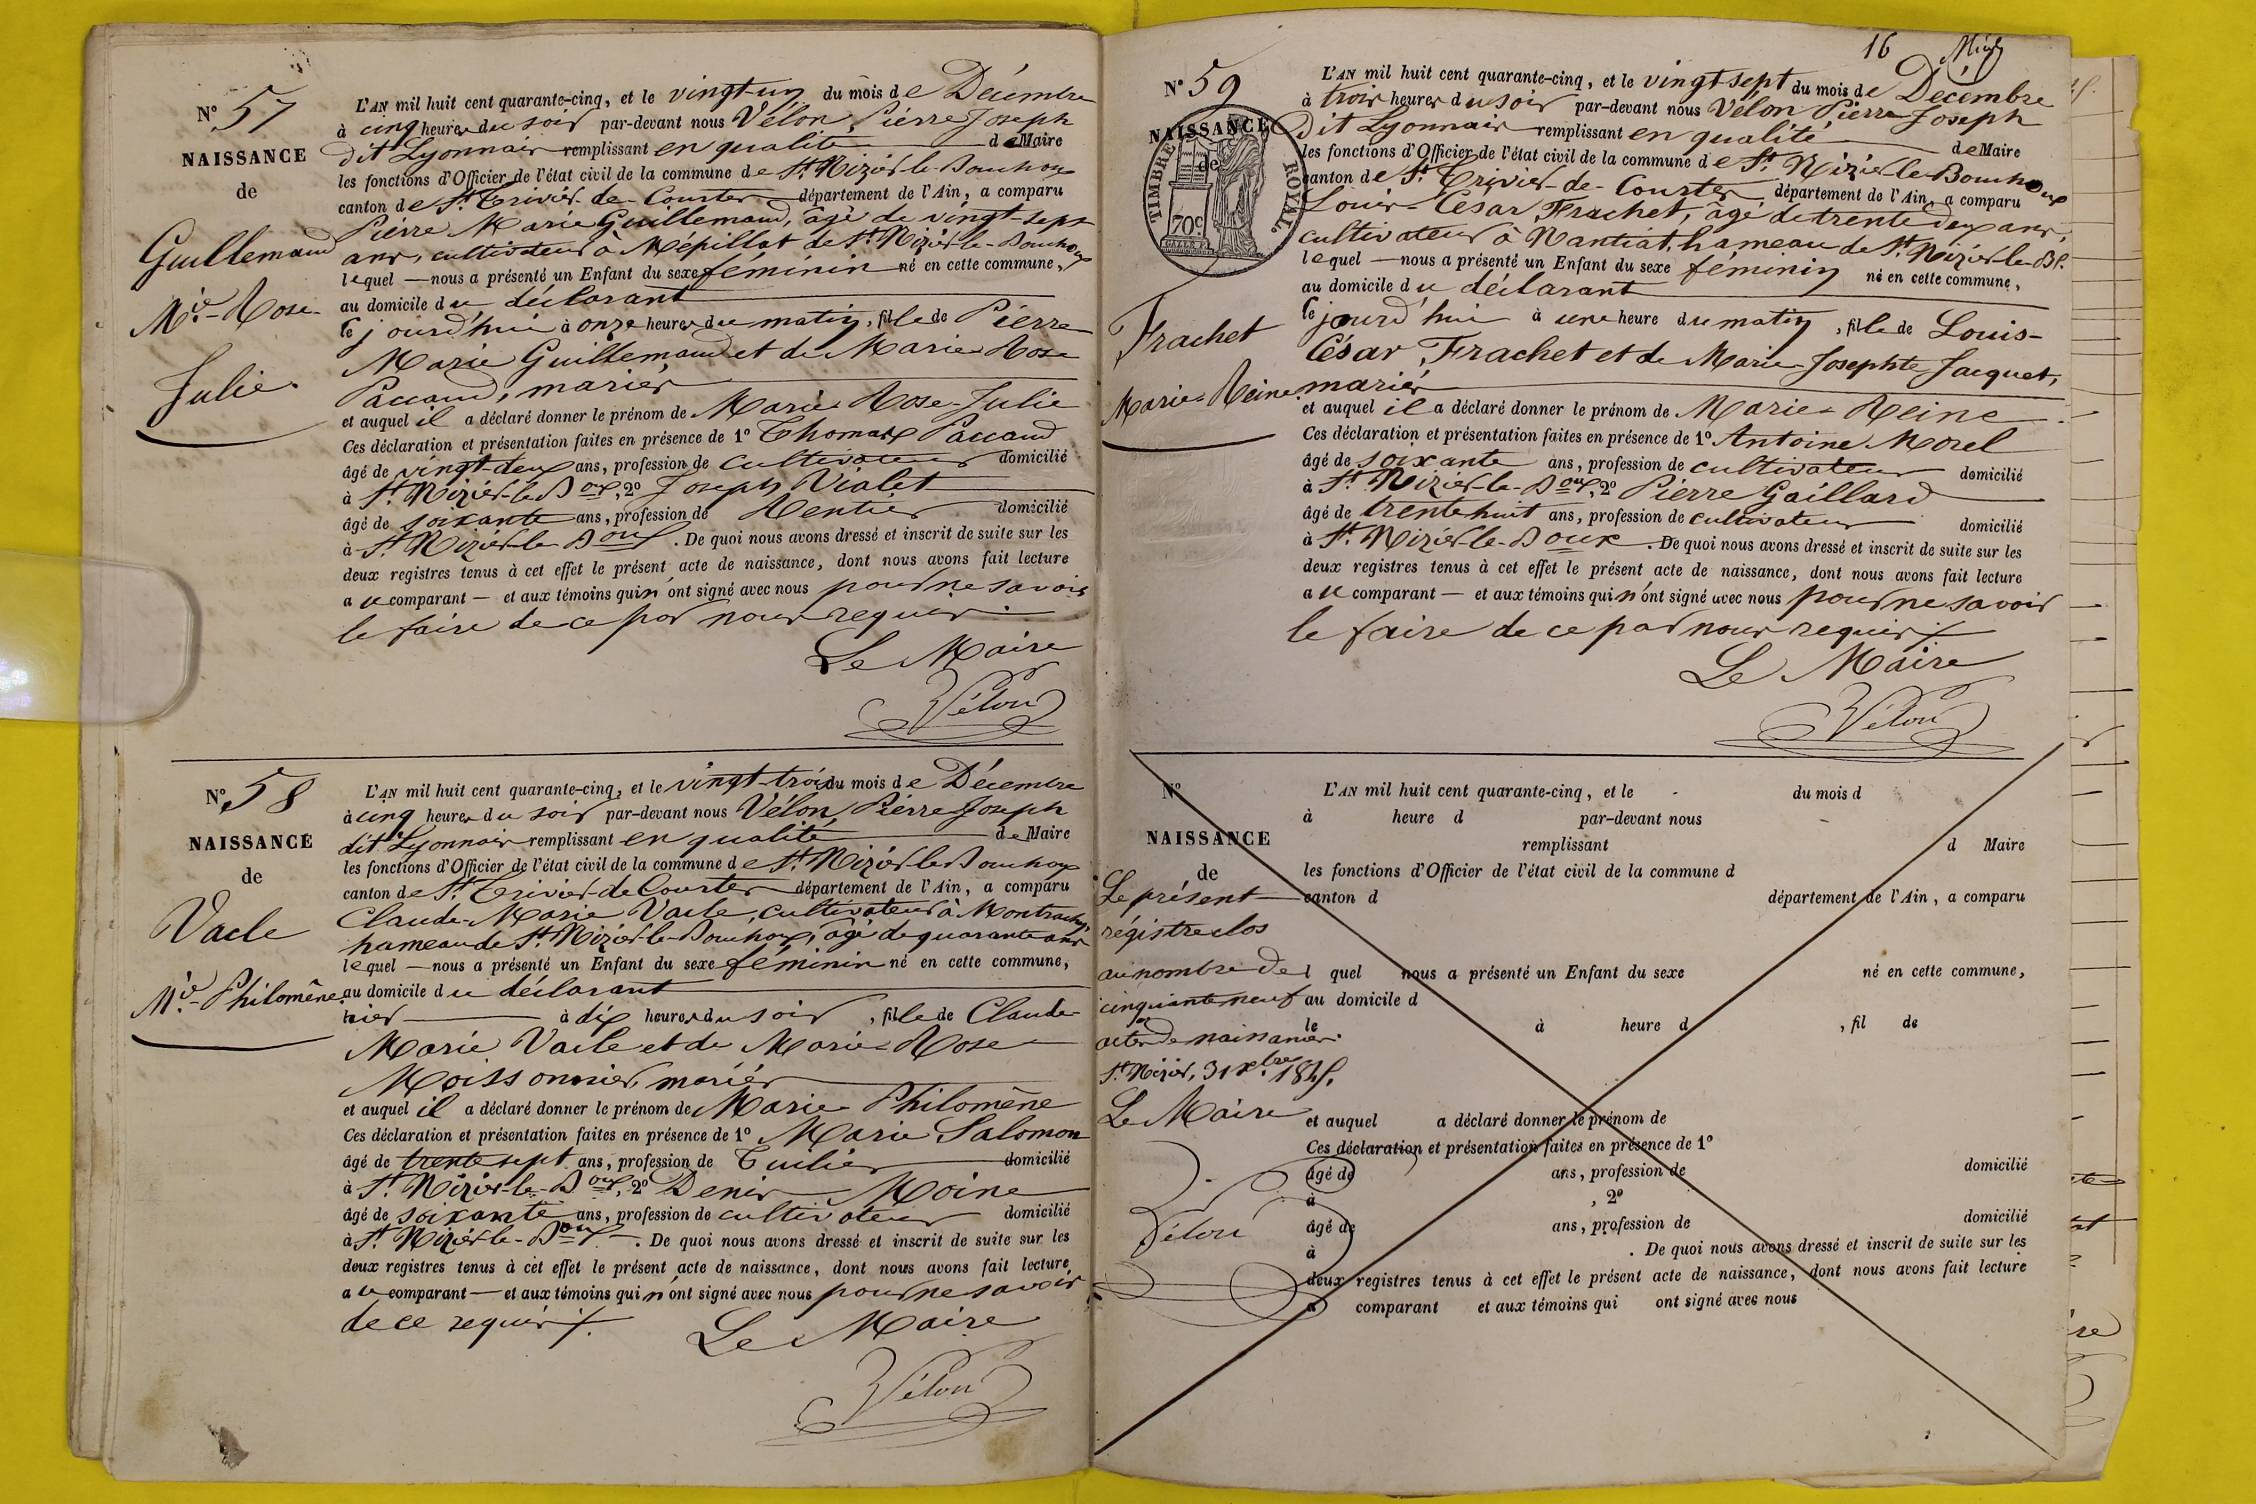 N.º 57
NAISSANCE
de
Guillemaud
M.ie-Rose-
Julie.
L'AN mil huit cent quarante-cinq, et le vingt-un du mois de Décembre
à cinq heures du soir par-devant nous Vélon, Pierre Joseph
dit Lyonnais remplissant en qualité de Maire
les fonctions d'Officier de l'état civil de la commune de St. Nizier-le-Bouchoux
canton de St. Trivier-de-Courtes département de l'Ain, a comparu
Pierre Marie Guillemaud, âgé de vingt-sept
ans, cultivateur à Mépillat de St. Nizier-le-Bouchoux
lequel — nous a présenté un Enfant du sexe féminin né en cette commune,
au domicile du déclarant
ce jourd'hui à onze heures du matin, fille de Pierre
Marie Guillemaud et de Marie-Rose
Paccaud, mariés
et auquel il a déclaré donner le prénom de Marie-Rose-Julie
Ces déclaration et présentation faites en présence de 1º Thomas Paccaud
âgé de vingt-deux ans, profession de cultivateur domicilié
à St. Nizier-le-Boux, 2º Joseph Vialet
âgé de soixante ans, profession de Rentier domicilié
à St. Nizier-le-Boux. De quoi nous avons dressé et inscrit de suite sur les
deux registres tenus à cet effet le présent acte de naissance, dont nous avons fait lecture
au comparant — et aux témoins qui n'ont signé avec nous pour ne savoir
le faire de ce par nous requis.
Le Maire
Vélon
N.º 58
NAISSANCE
de
Vacle
M.ie-Philomène.
L'AN mil huit cent quarante-cinq, et le vingt-trois du mois de Décembre
à cinq heures du soir par-devant nous Vélon, Pierre Joseph
dit Lyonnais remplissant en qualité de Maire
les fonctions d'Officier de l'état civil de la commune de St. Nizier-le-Bouchoux
canton de St. Trivier-de-Courtes département de l'Ain, a comparu
Claude-Marie Vacle, cultivateur à
hameau de St. Nizier-le-Bouchoux, âgé de quarante ans
lequel — nous a présenté un Enfant du sexe féminin né en cette commune,
au domicile du déclarant
hier à dix heures du soir, fille de Claude-
Marie Vacle et de Marie-Rose
Moissonnier, mariés
et auquel il a déclaré donner le prénom de Marie Philomène
Ces déclaration et présentation faites en présence de 1º Marie Salomon
âgé de trente sept ans, profession de Tuilier domicilié
à St. Nizier-le-Boux, 2º Denis Moine
âgé de soixante ans, profession de cultivateur domicilié
à St. Nizier-le-Boux. De quoi nous avons dressé et inscrit de suite sur les
deux registres tenus à cet effet le présent acte de naissance, dont nous avons fait lecture
au comparant — et aux témoins qui n'ont signé avec nous pour ne savoir
de ce requis.
Le Maire
Vélon
16
N.º 59
NAISSANCE
de
TIMBRE ROYAL.
70c
Frachet
Marie-Reine.
L'AN mil huit cent quarante-cinq, et le vingt sept du mois de Décembre
à trois heures du soir par-devant nous Vélon Pierre Joseph
dit Lyonnais remplissant en qualité de Maire
les fonctions d'Officier de l'état civil de la commune de St. Nizier-le-Bouchoux
canton de St. Trivier-de-Courtes, département de l'Ain, a comparu
Louis-César Frachet, âgé de trente deux ans,
cultivateur à Nantiat, hameau de St. Nizier-le-Bx.
lequel — nous a présenté un Enfant du sexe féminin né en cette commune,
au domicile du déclarant
ce jourd'hui à une heure du matin, fille de Louis-
César, Frachet et de Marie-Josephte Jacquet,
mariés
et auquel il a déclaré donner le prénom de Marie-Reine
Ces déclaration et présentation faites en présence de 1º Antoine Morel
âgé de soixante ans, profession de cultivateur domicilié
à St. Nizier-le-Boux, 2º Pierre Gaillard
âgé de trente huit ans, profession de cultivateur domicilié
à St. Nizier-le-Boux. De quoi nous avons dressé et inscrit de suite sur les
deux registres tenus à cet effet le présent acte de naissance, dont nous avons fait lecture
au comparant — et aux témoins qui n'ont signé avec nous pour ne savoir
le faire de ce par nous requis.
Le Maire
Vélon
Nº
NAISSANCE
de
Le présent
régistre clos
au nombre de
cinquante neuf
actes de naissances.
St. Nizier, 31 Xbre 1845.
Le Maire
Vélon
L'AN mil huit cent quarante-cinq, et le du mois d
à heure d par-devant nous
remplissant d Maire
les fonctions d'Officier de l'état civil de la commune d
canton d département de l'Ain, a comparu
l quel nous a présenté un Enfant du sexe né en cette commune,
au domicile d
le à heure d , fil de
et auquel a déclaré donner le prénom de
Ces déclaration et présentation faites en présence de 1º
âgé de ans, profession de domicilié
à , 2º
âgé de ans, profession de domicilié
à . De quoi nous avons dressé et inscrit de suite sur les
deux registres tenus à cet effet le présent acte de naissance, dont nous avons fait lecture
a comparant et aux témoins qui ont signé avec nous